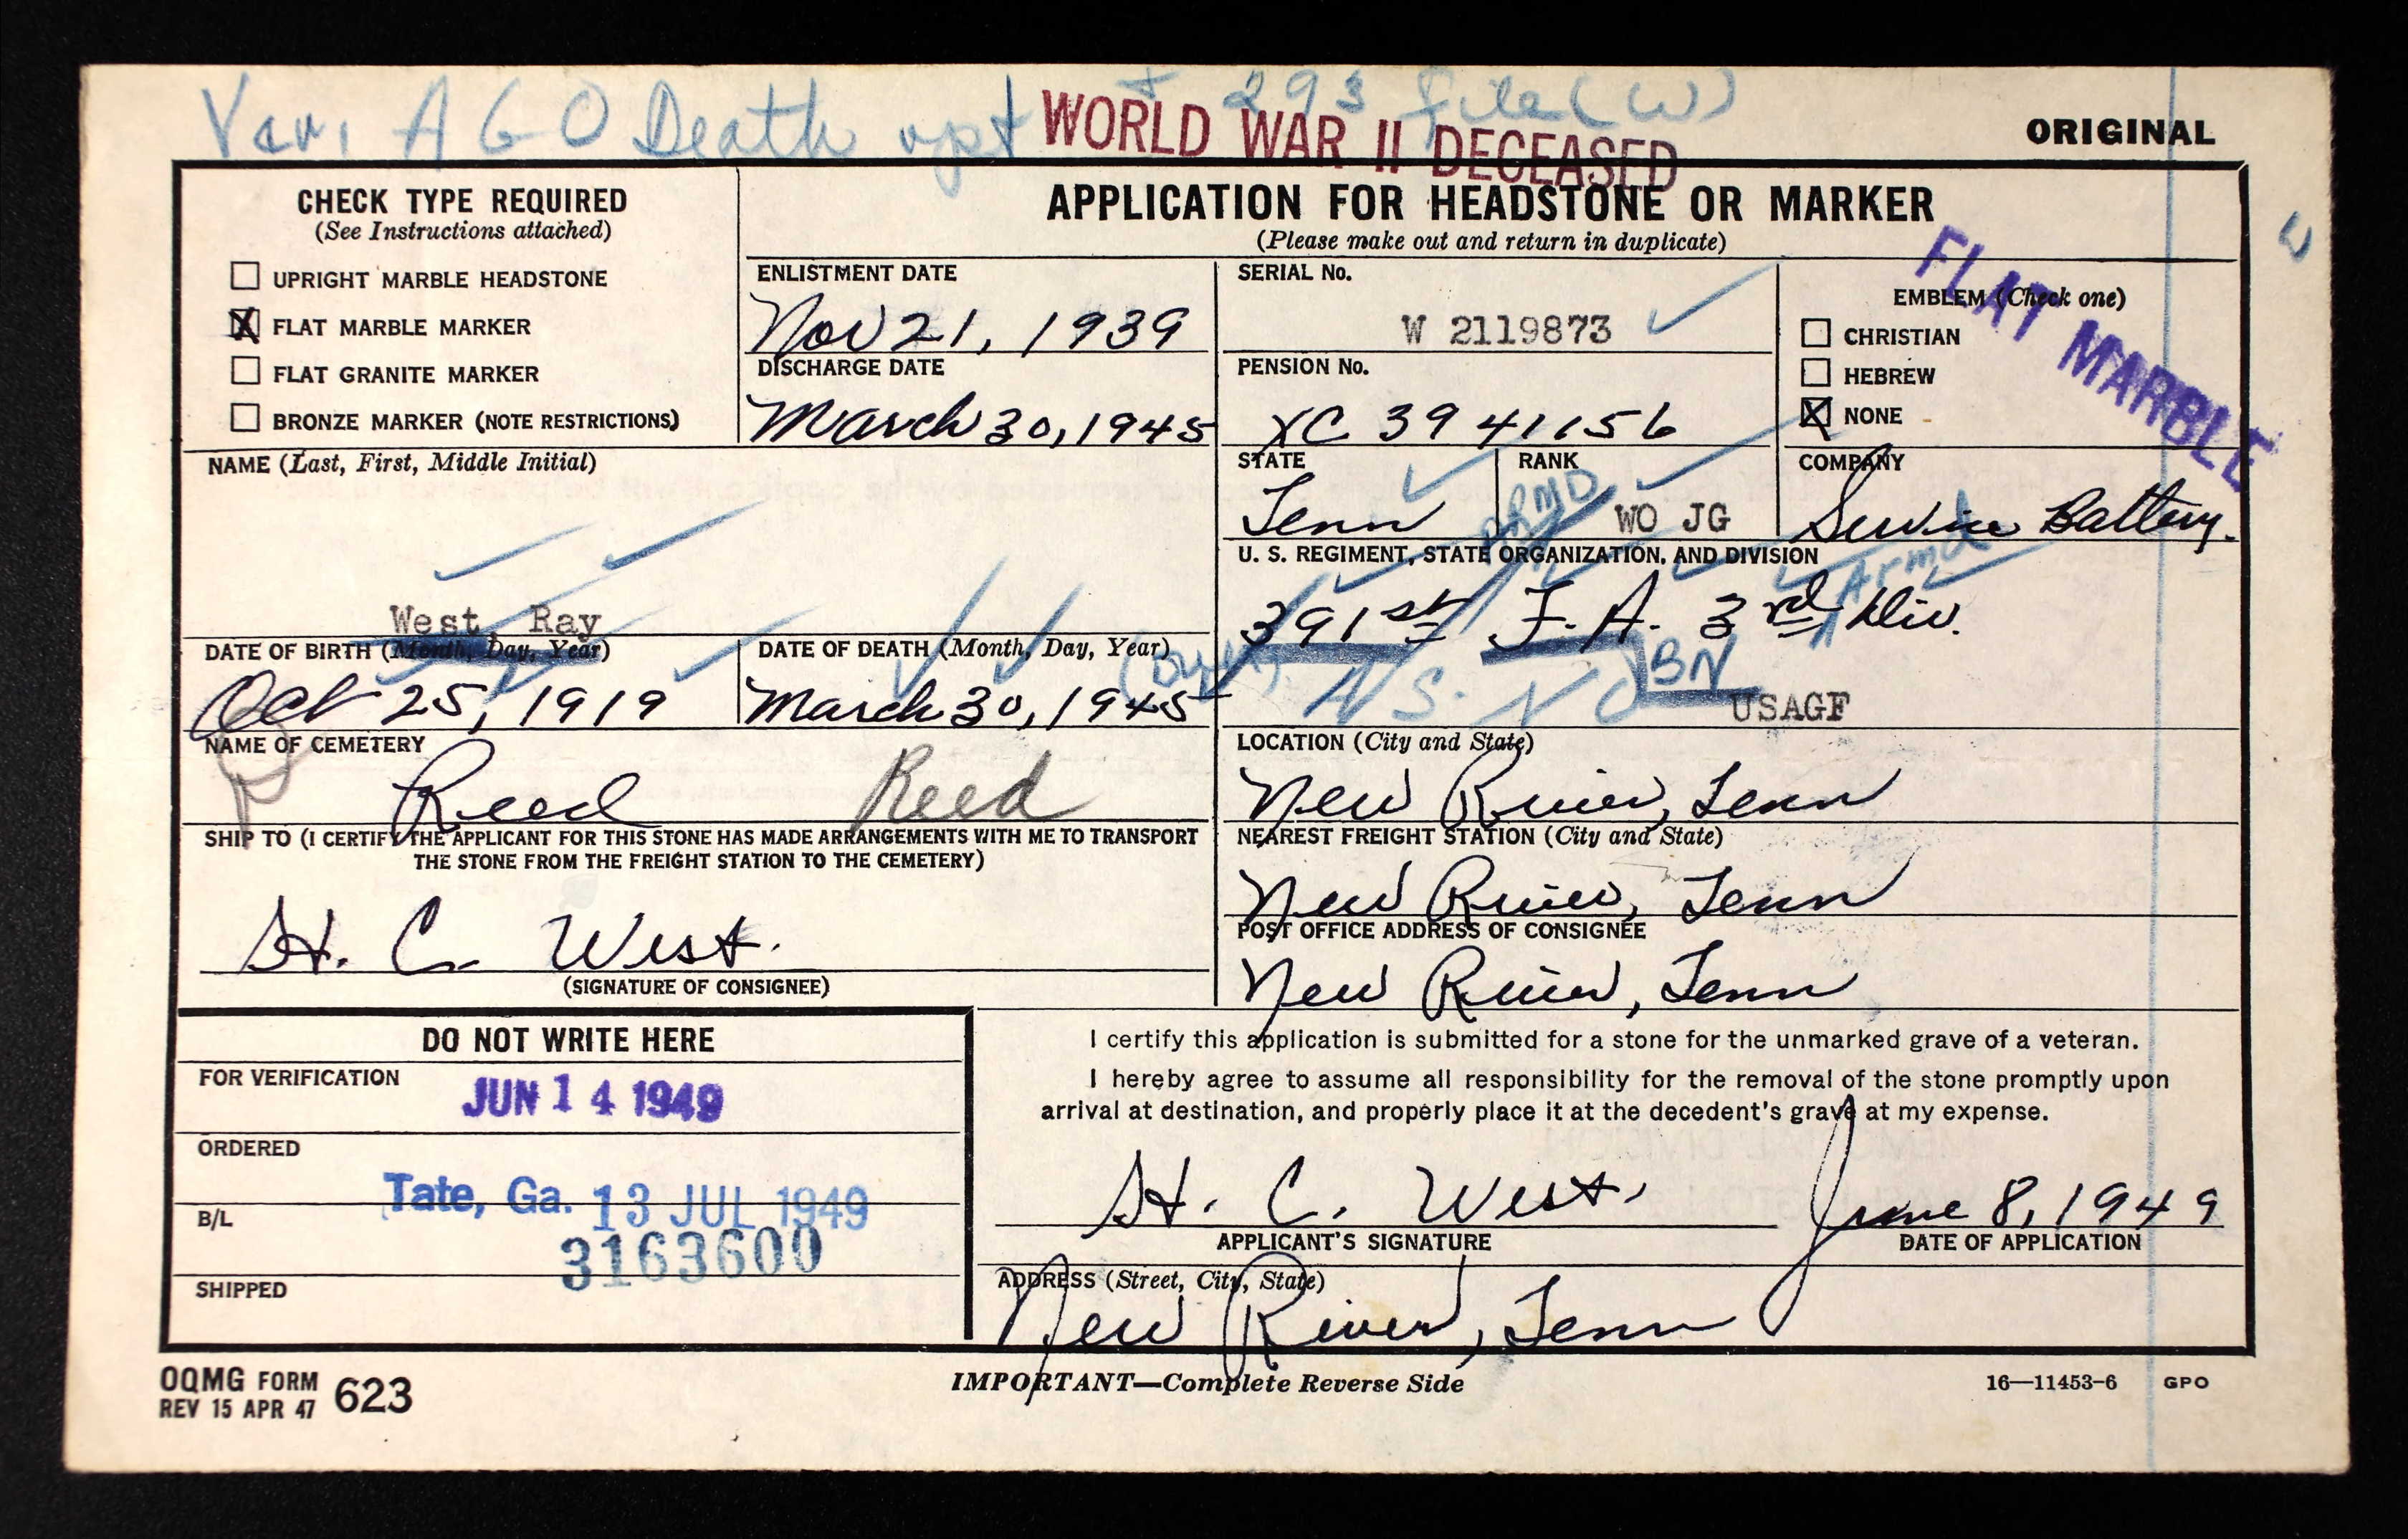 Ver. A G O Death rpt + 293 file (W)
WORLD WAR II DECEASED
ORIGINAL
CHECK TYPE REQUIRED
(See Instructions attached)
UPRIGHT MARBLE HEADSTONE
X FLAT MARBLE MARKER
FLAT GRANITE MARKER
BRONZE MARKER (NOTE RESTRICTIONS)
APPLICATION FOR HEADSTONE OR MARKER
(Please make out and return in duplicate)
ENLISTMENT DATE
Nov 21, 1939
DISCHARGE DATE
March 30, 1945
SERIAL No.
W 2119873
PENSION No.
XC 3941156
EMBLEM (Check one)
CHRISTIAN
HEBREW
X NONE
FLAT MARBLE
W
NAME (Last, First, Middle Initial)
West, Ray
STATE
Tenn
RANK
WO JG
COMPANY
Service Battery.
U. S. REGIMENT, STATE ORGANIZATION, AND DIVISION
ARMD
Armd
391st F. A. 3rd Div.
BN
USAGF
DATE OF BIRTH (Month, Day, Year)
Oct 25, 1919
DATE OF DEATH (Month, Day, Year)
March 30, 1945
NAME OF CEMETERY
Reed Reed
LOCATION (City and State)
New River, Tenn
SHIP TO (I CERTIFY THE APPLICANT FOR THIS STONE HAS MADE ARRANGEMENTS WITH ME TO TRANSPORT
THE STONE FROM THE FREIGHT STATION TO THE CEMETERY)
H. C. West.
(SIGNATURE OF CONSIGNEE)
NEAREST FREIGHT STATION (City and State)
New River, Tenn
POST OFFICE ADDRESS OF CONSIGNEE
New River, Tenn
DO NOT WRITE HERE
FOR VERIFICATION
JUN 14 1949
ORDERED
Tate, Ga. 13 JUL 1949
B/L
3163600
SHIPPED
I certify this application is submitted for a stone for the unmarked grave of a veteran.
I hereby agree to assume all responsibility for the removal of the stone promptly upon
arrival at destination, and properly place it at the decedent's grave at my expense.
H. C. West. June 8, 1949
APPLICANT'S SIGNATURE DATE OF APPLICATION
ADDRESS (Street, City, State)
New River, Tenn
OQMG FORM 623
REV 15 APR 47
IMPORTANT—Complete Reverse Side
16—11453-6 GPO